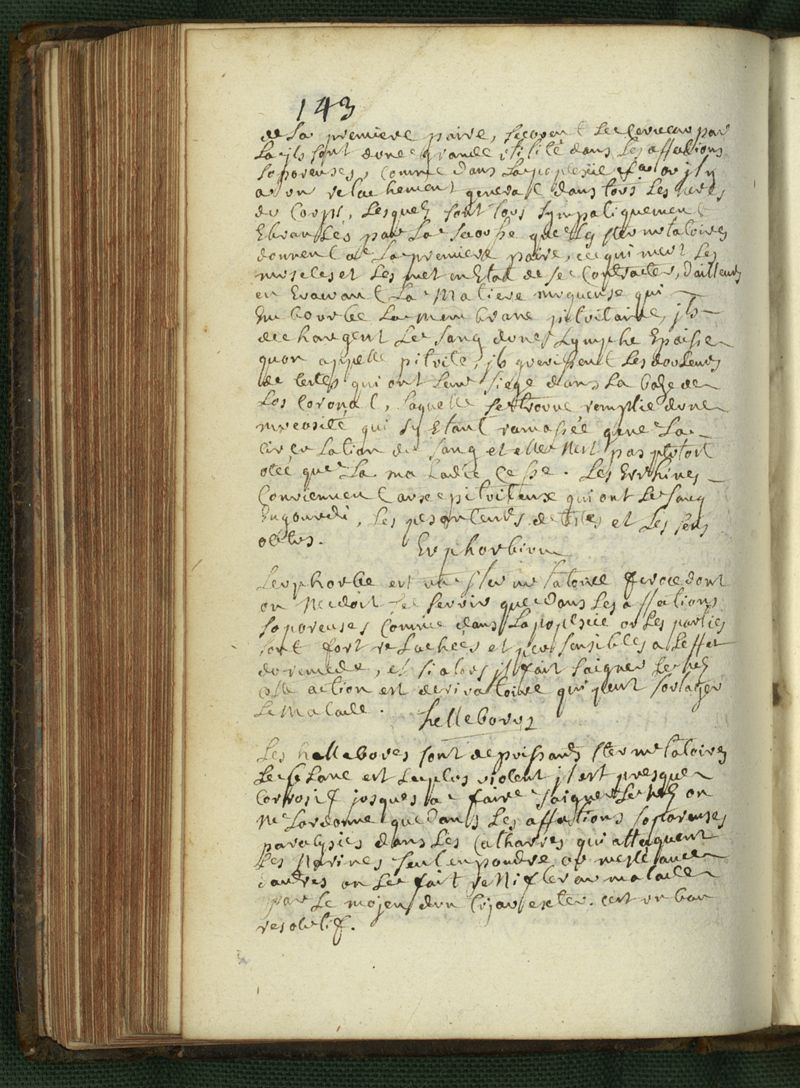 143
de la premiere paire, secouent le cerveau par
la ils sont dune grande utilité dans les affections
soporeuses, comme dans lapoplexie
a un relachement general dans tous les
du corps, lesquels sont tous sympatiquement
Ebranlés par la que les sternutatoires
donnent a la premiere paire, ce qui meut les
muscles et les met en Etat de se contracter, dailleurs
en Evacuant la Matiere muqueuse qui
Embourbe la membrane pituitaire, ils
dechargent le sang dune lymphe Epaisse
quon appelle pituite, ils guerissent les douleurs
de tetes qui ont leur siege dans la base de
los coronal, laquelle se trouve remplie dune
mucosité qui sy Etant ramassée gene la
circulation du sang et elle nest pas plutost
otée que la maladie cesse. Les Errhines
conviennent aux pituiteux qui ont le sang
Engourdi, les pesanteurs de tetes et les sens
Euphorbium
Leuphorbe est un sternutatoire feroce dont
on ne doit se servir que dans les affections
soporeuses comme dans lapoplexie ou les parties
sont fort relachées et peu sensibles a leffet
du remede, et si alors il fait saigner le nez
cette action est derivatoire qui peut soulager
le malade.
helleborus
Les hellebores sont de puissants sternutatoires
le blanc est le plus violent il est presque
corrosif jusques a faire saigner le nez on
ne lordonne que dans les affections soporeuses
paralysies dans les catharres qui attaquent
les Narines seul en poudre ou meslé avec
dautres on le fait renifler au malade
par le mojen dun cest un bon
resolutif.